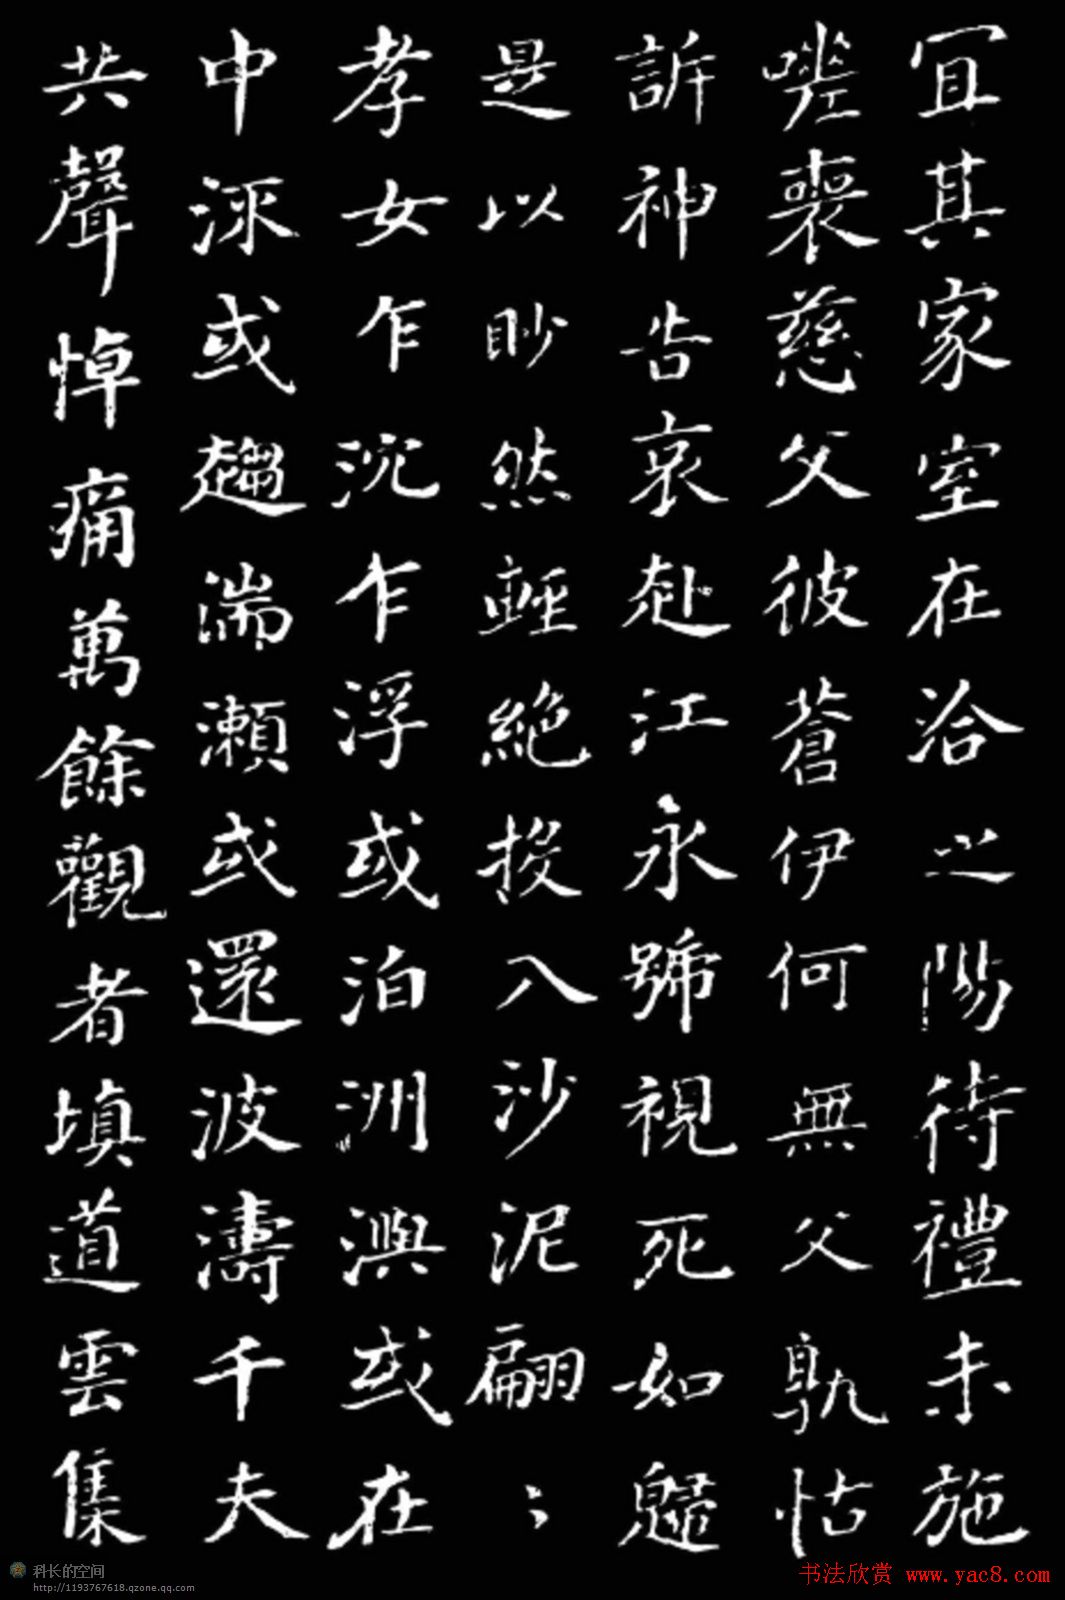 宜其家室在洽之陽待禮未施
嗟喪慈父彼蒼伊何無父孰怙
訴神告哀赴江永號視死如歸
是以眇然輕絕投入沙泥翩〻
孝女乍沈乍浮或泊洲嶼或在
中流或趨湍瀨或還波濤千夫
共聲悼痛萬餘觀者填道雲集
科长的空间
http://1193767618.qzone.qq.com
书法欣赏 www.yac8.com